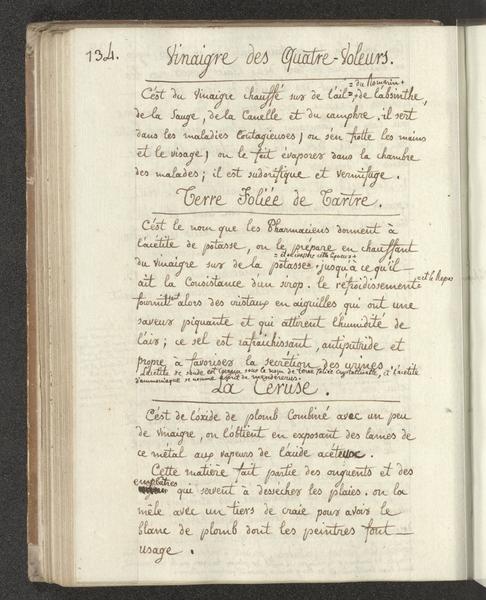 134.
Vinaigre des Quatre-Voleurs.
= du Romarin +
C'est du Vinaigre chauffé sur de l'ail =, de l'absinthe,
de la Sauge, de la Canelle et du camphre, il sert
dans les maladies Contagieuses; on s'en frotte les mains
et le visage; on le fait évaporer dans la chambre
des malades; il est sudorifique et vermifuge.
Terre Foliée de Tartre.
C'est le nom que les Pharmaciens donnent à
l'acétite de potasse, on le prépare en chauffant
du vinaigre sur de la potasse =, jusqu'à ce qu'il
ait la Consistance d'un sirop. le refroidissement = et le Repos
fournit alors des cristaux en aiguilles qui ont une
saveur piquante et qui attirent l'humidité de
l'air; ce sel est rafraichissant, antiputride et
propre à favoriser la secrétion des urines.
L'acétite de soude est Connue sous le nom de terre foliée crystallisée, et l'acétite
d'ammoniaque se nomme esprit de mendererus.
La Ceruse.
C'est de l'oxide de plomb Combiné avec un peu
de vinaigre, on l'obtient en exposant des lames de
ce métal aux vapeurs de l'acide acéteux.
Cette matière fait partie des onguents et des
emplâtres
qui servent à dessecher les plaies. on la
mêle avec un tiers de craie pour avoir le
blanc de plomb dont les peintres font
usage.